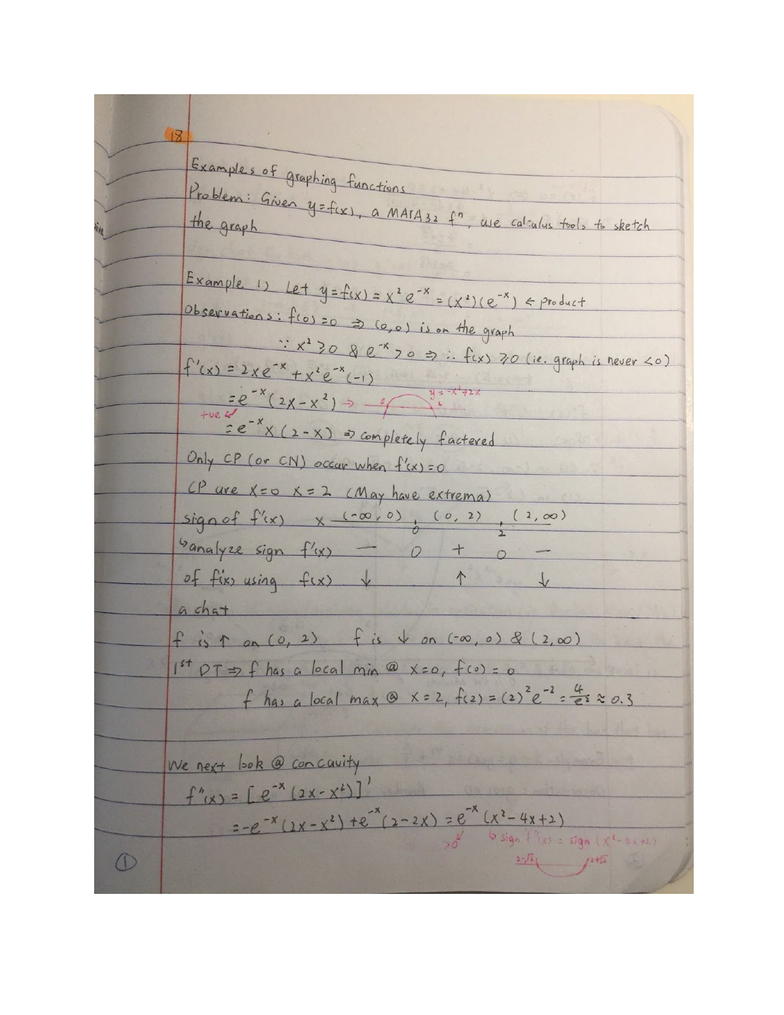 18
Examples of graphing functions
Problem: Given y=f(x), a MATA32 fⁿ, use calculus tools to sketch
the graph
Example 1) Let y=f(x) = x²e⁻ˣ = (x²)(e⁻ˣ) ← product
Observations: f(0)=0 ⇒ (0,0) is on the graph
∵ x² ≥ 0 & e⁻ˣ > 0 ⇒ ∴ f(x) ≥ 0 (ie. graph is never <0)
f'(x) = 2xe⁻ˣ + x²e⁻ˣ(-1)
= e⁻ˣ(2x-x²) → y=-x²+2x
+ve
= e⁻ˣx(2-x) ⇒ completely factored
Only CP (or CN) occur when f'(x)=0
CP are x=0 x=2 (May have extrema)
sign of f'(x) x (-∞,0) 0 (0,2) 2 (2,∞)
↳analyze sign f'(x) — 0 + 0 —
of f'(x) using f(x) ↓ ↑ ↓
a chat
f is ↑ on (0,2) f is ↓ on (-∞,0) & (2,∞)
1ˢᵗ DT ⇒ f has a local min @ x=0, f(0)=0
f has a local max @ x=2, f(2)=(2)²e⁻²=4/e² ≈ 0.3
We next look @ concavity
f"(x) = [e⁻ˣ(2x-x²)]'
= -e⁻ˣ(2x-x²)+e⁻ˣ(2-2x) = e⁻ˣ(x²-4x+2)
>0 ↳ sign f"(x) = sign (x²-4x+2)
2-√2 2+√2
1